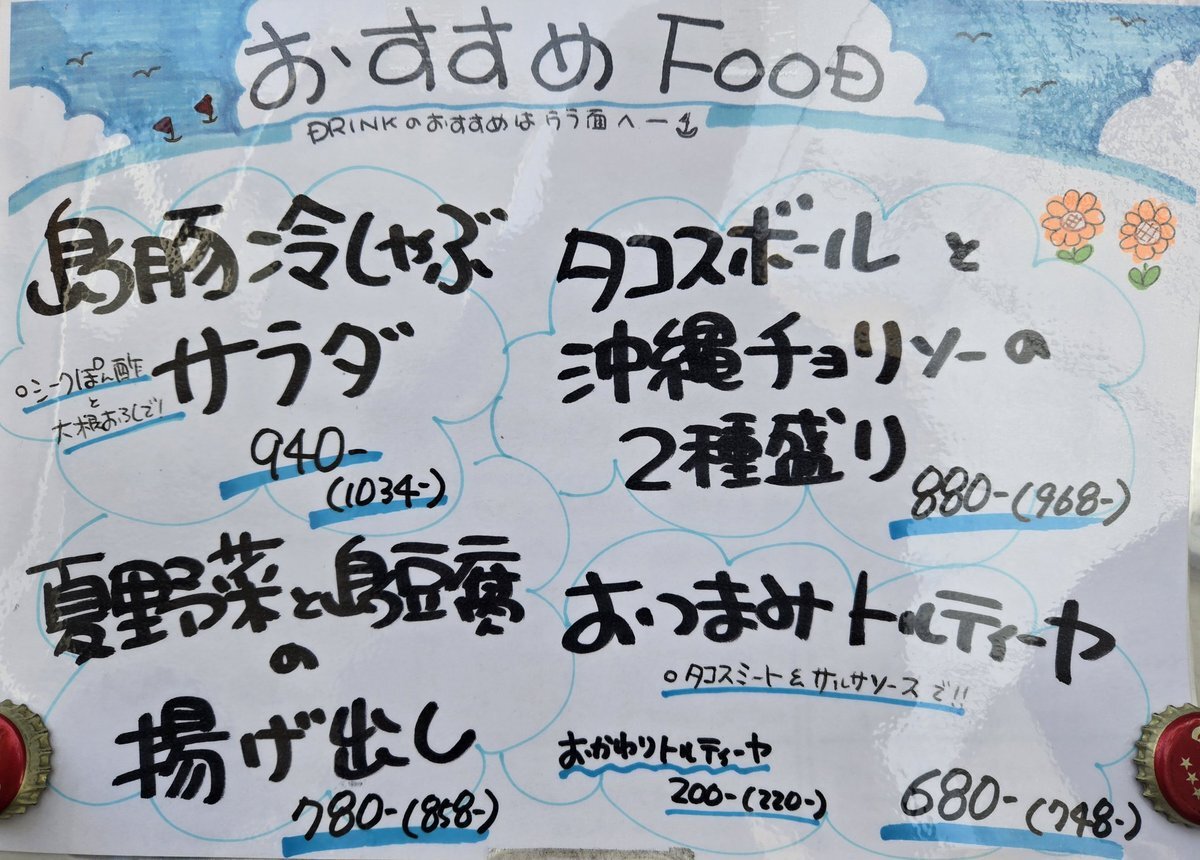 おすすめ FOOD
DRINKのおすすめはうう面へー
島豚冷しゃぶ
サラダ
○シークぽん酢
と
大根おろしで!
940-
(1034-)
タコスボールと
沖縄チョリソーの
2種盛り
880-(968-)
夏野菜と島豆腐
の
揚げ出し
780-(858-)
おつまみトルティーヤ
○タコスミート&サルサソースで!!
おかわりトルティーヤ
200-(220-)
680-(748-)